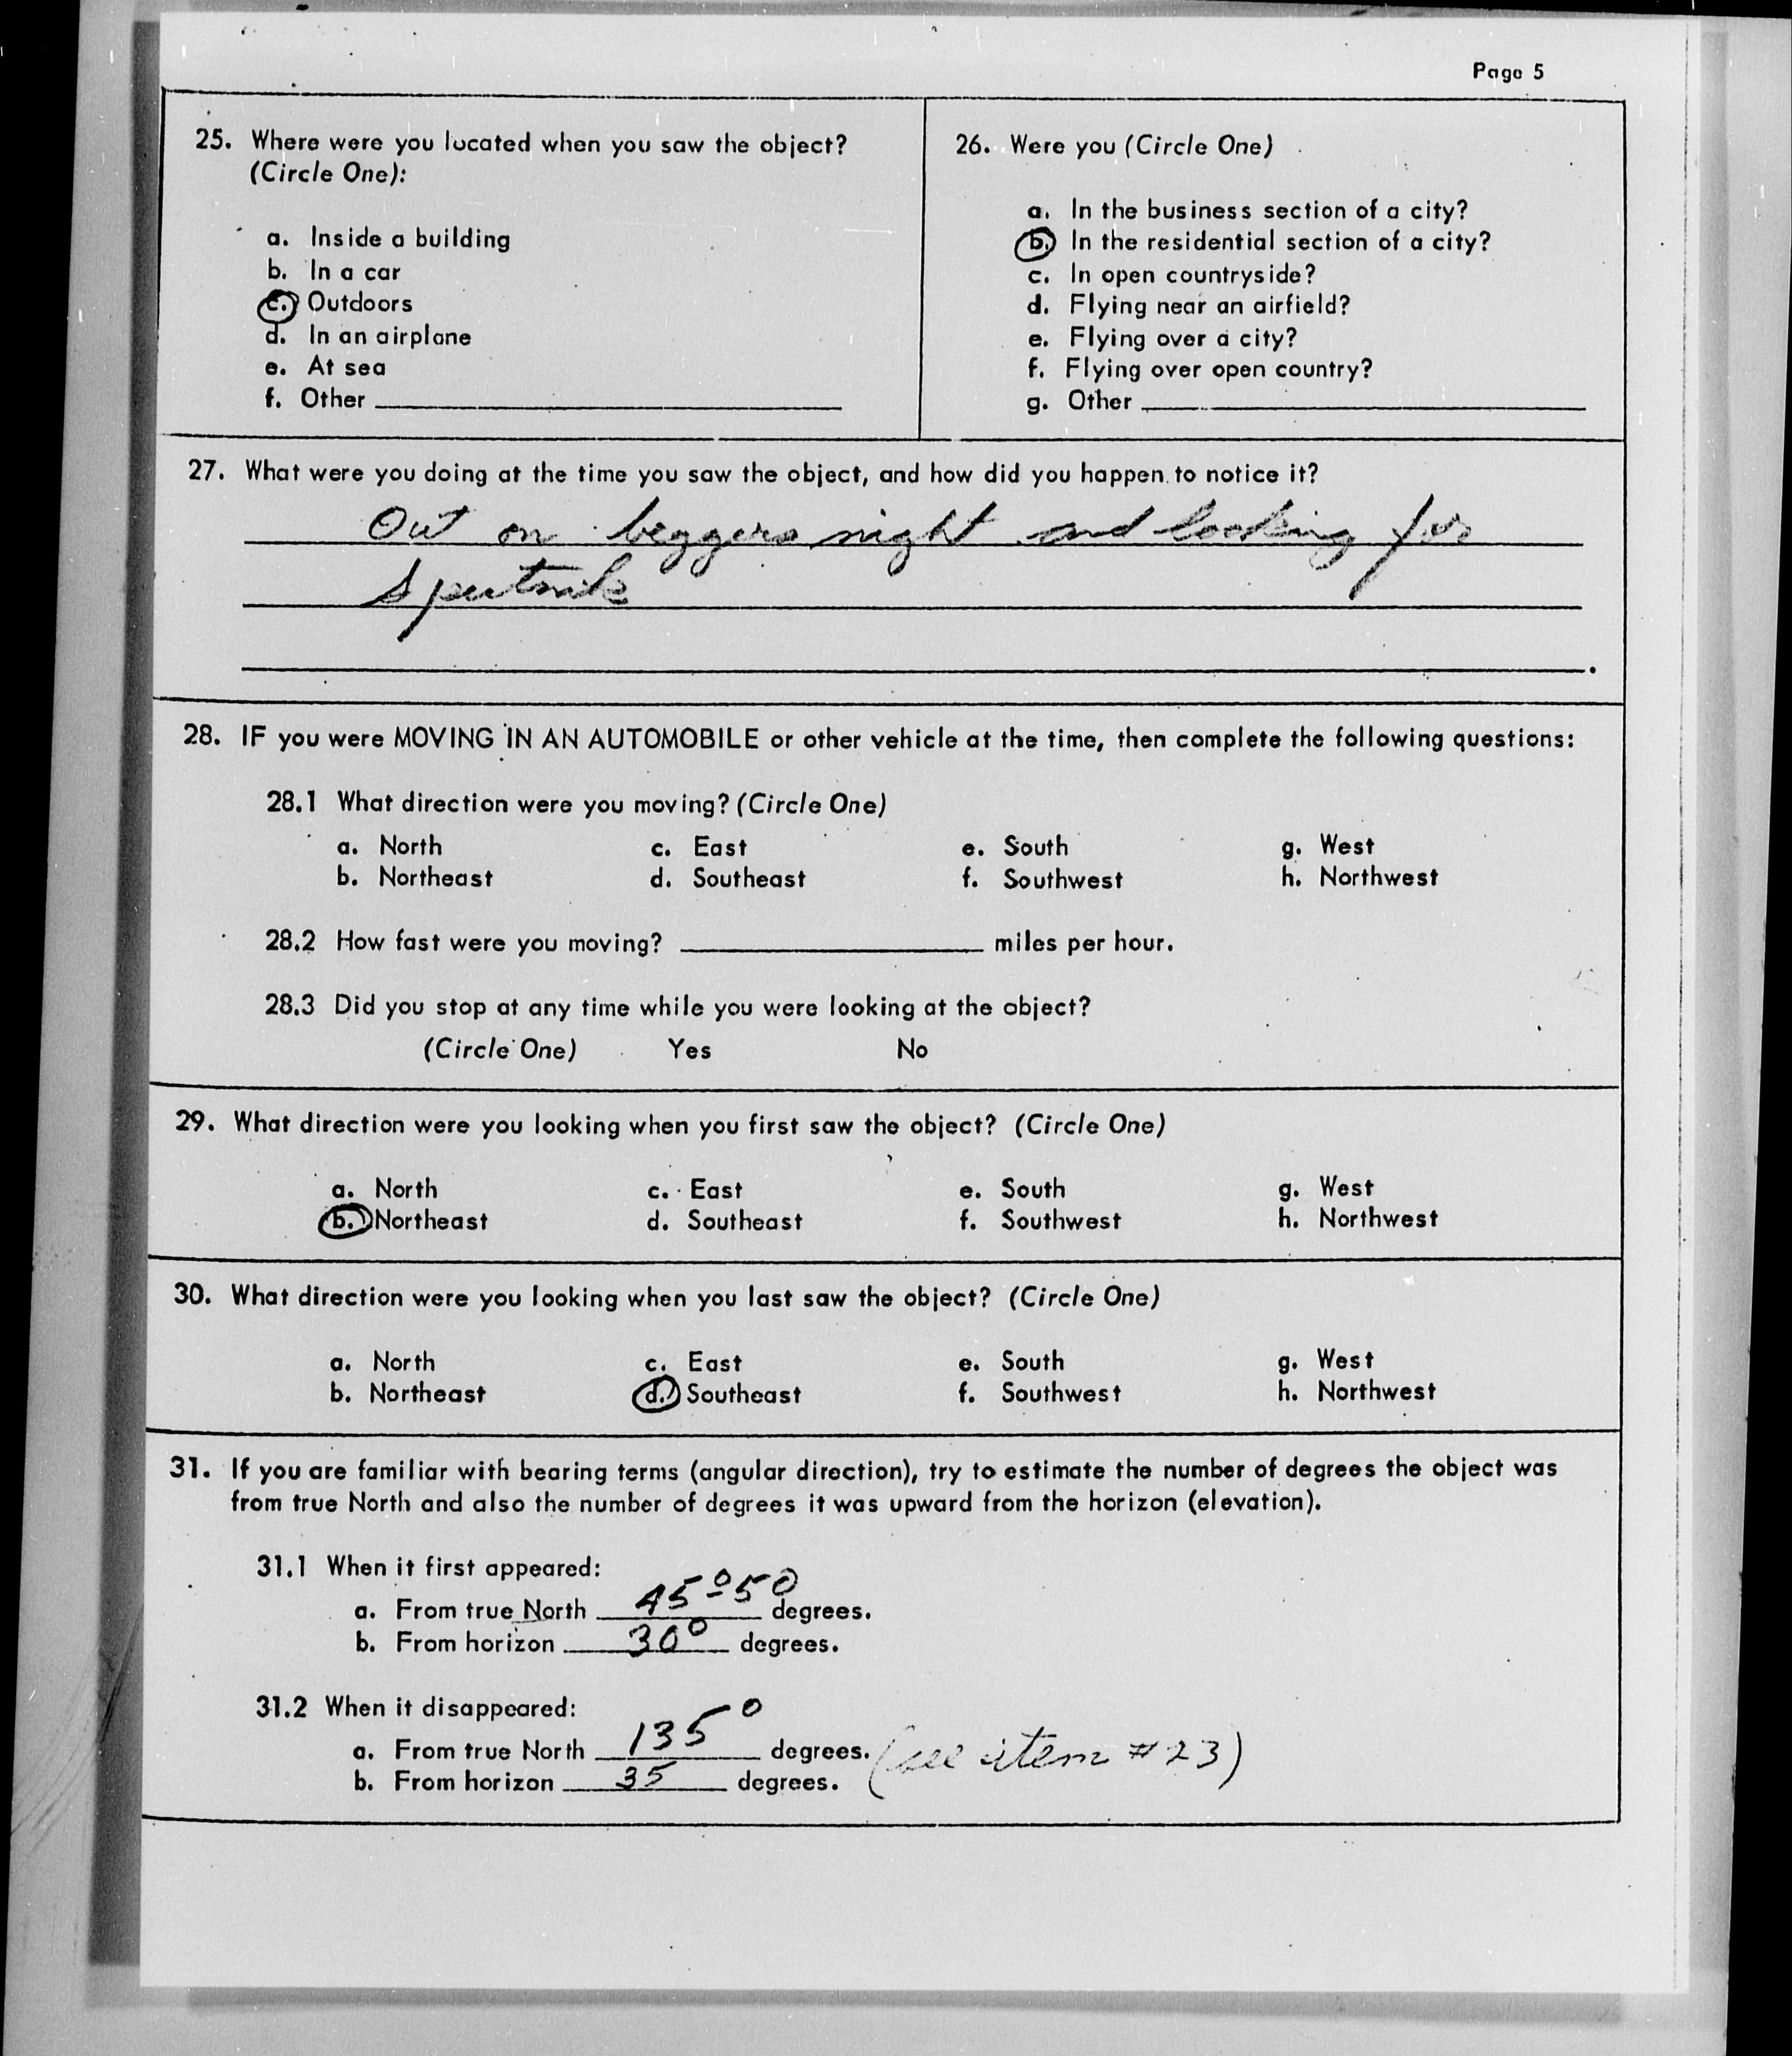 Page 5
25. Where were you located when you saw the object?
(Circle One):
a. Inside a building
b. In a car
c. Outdoors
d. In an airplane
e. At sea
f. Other
26. Were you (Circle One)
a. In the business section of a city?
b. In the residential section of a city?
c. In open countryside?
d. Flying near an airfield?
e. Flying over a city?
f. Flying over open country?
g. Other
27. What were you doing at the time you saw the object, and how did you happen to notice it?
Out on beggers night and looking for
Sputnik
28. IF you were MOVING IN AN AUTOMOBILE or other vehicle at the time, then complete the following questions:
28.1 What direction were you moving? (Circle One)
a. North c. East e. South g. West
b. Northeast d. Southeast f. Southwest h. Northwest
28.2 How fast were you moving? miles per hour.
28.3 Did you stop at any time while you were looking at the object?
(Circle One) Yes No
29. What direction were you looking when you first saw the object? (Circle One)
a. North c. East e. South g. West
b. Northeast d. Southeast f. Southwest h. Northwest
30. What direction were you looking when you last saw the object? (Circle One)
a. North c. East e. South g. West
b. Northeast d. Southeast f. Southwest h. Northwest
31. If you are familiar with bearing terms (angular direction), try to estimate the number of degrees the object was
from true North and also the number of degrees it was upward from the horizon (elevation).
31.1 When it first appeared:
a. From true North 45°-50 degrees.
b. From horizon 30° degrees.
31.2 When it disappeared:
a. From true North 135° degrees. (see item #23)
b. From horizon 35 degrees.